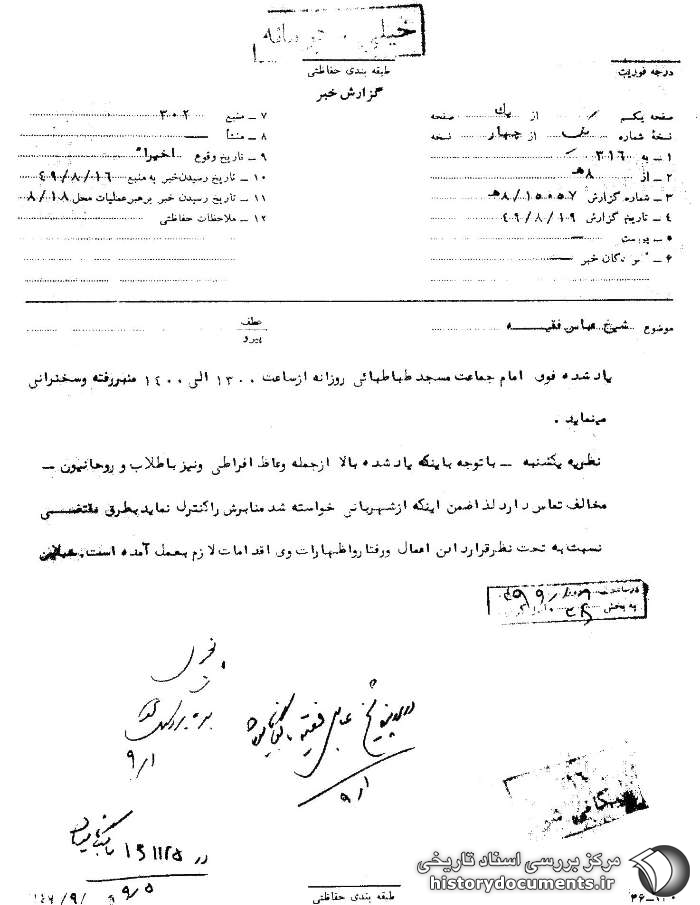 طبقه بندی حفاظتی
درجه فوریت
گزارش خبر
صفحه یکم از یک صفحه
نسخهٔ شماره از چهار نسخه
۱ ـ به ۳۱۶
۲ ـ از ۸هـ
۳ ـ شماره گزارش ۸/۱۵۰۵۷هـ
۴ ـ تاریخ گزارش ۴۹/۸/۱۹
۵ ـ پیوست
۶ ـ گان خبر
۷ ـ منبع ۳۰۲
۸ ـ منشأ
۹ ـ تاریخ وقوع اخیراً
۱۰ ـ تاریخ رسیدن خبر به منبع ۴۹/۸/۱۶
۱۱ ـ تاریخ رسیدن خبر برهبر عملیات محل ۸/۱۸
۱۲ ـ ملاحظات حفاظتی
موضوع شیخ عباس فقیه
عطف
پیرو
یاد شده فوق امام جماعت مسجد طباطبائی روزانه ازساعت ۱۳۰۰ الی ۱۴۰۰ منبررفته وسخنرانی
مینماید .
نظریه یکشنبه ـ با توجه باینکه یاد شده بالا ازجمله وعاظ افراطی ونیز باطلاب و روحانیون ـ
مخالف تماس دارد لذا ضمن اینکه ازشهربانی خواسته شد منابرش راکنترل نماید بطرق مقتضی
نسبت به تحت نظرقراردادن اعمال ورفتارواظهارات وی اقدامات لازم بعمل آمده است.
به بخش
شیخ عباس فقیه
۹/۱
۹/۱
بایگانی شود
طبقه بندی حفاظتی
مرکز بررسی اسناد تاریخی
historydocuments.ir